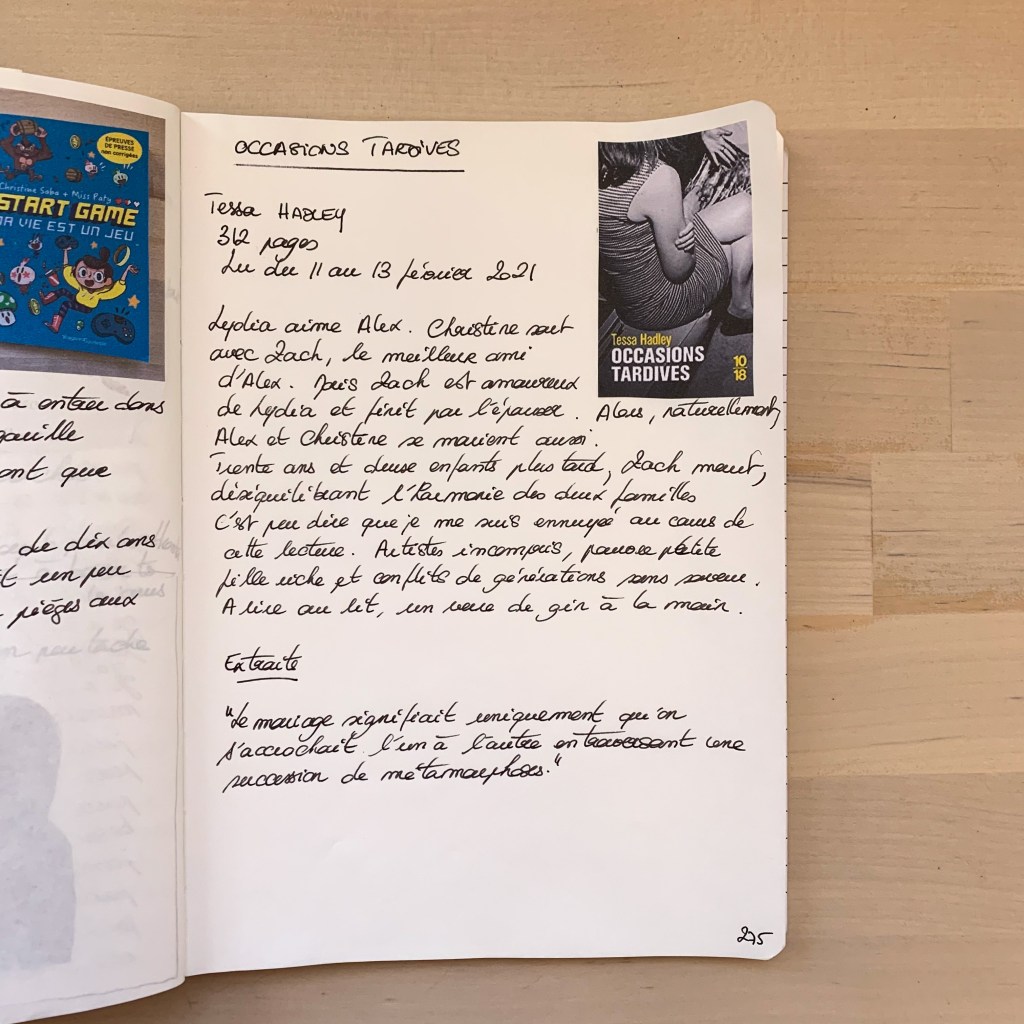 ÉPREUVES
DE PRESSE
non corrigées
Christine Saba + Miss Paty
START GAME
MA VIE EST UN JEU
à entrer dans
ont que
de dix ans
t un peu
pièges aux
OCCASIONS TARDIVES
Tessa HADLEY
312 pages
Lu du 11 au 13 février 2021
Tessa Hadley
OCCASIONS
TARDIVES
10
18
Lydia aime Alex. Christine sort
avec Zach, le meilleur ami
d'Alex. Puis Zach est amoureux
de Lydia et finit par l'épouser. Alors, naturellement,
Alex et Christine se marient aussi.
Trente ans et deux enfants plus tard, Zach meurt,
déséquilibrant l'harmonie des deux familles
C'est peu dire que je me suis ennuyé au cours de
cette lecture. Artistes incompris, pauvre petite
fille riche et conflits de générations sans saveur.
A lire au lit, un verre de gin à la main.
Extraits
"Le mariage signifiait uniquement qu'on
s'accrochait l'un à l'autre en traversant une
succession de métamorphoses."
275